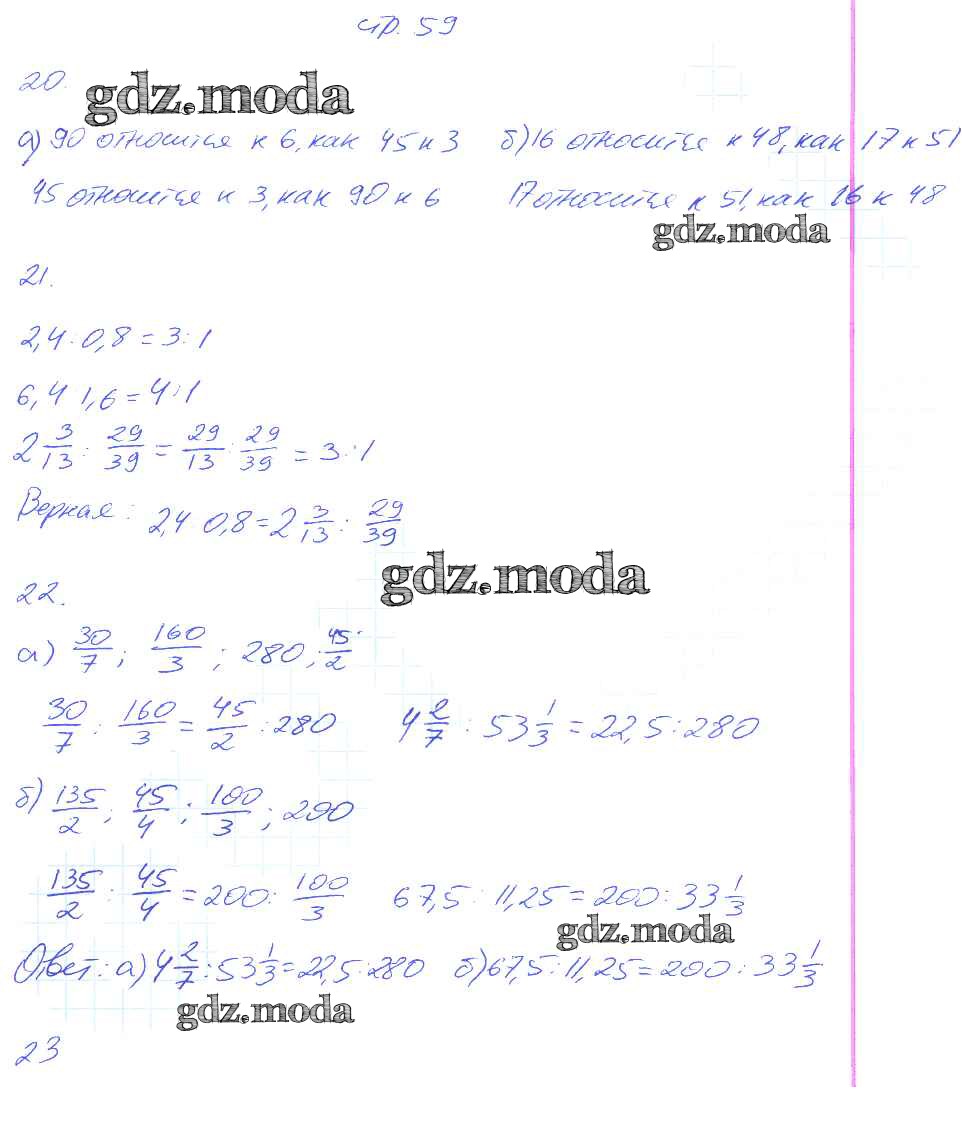 стр. 59
20.
gdz.moda
а) 90 относится к 6, как 45 к 3 б) 16 относится к 48, как 17 к 51
45 относится к 3, как 90 к 6 17 относится к 51, как 16 к 48
gdz.moda
21.
2,4 : 0,8 = 3 : 1
6,4 : 1,6 = 4 : 1
2 3/13 : 29/39 = 29/13 : 29/39 = 3 : 1
Верная : 2,4 0,8 = 2 3/13 : 29/39
gdz.moda
22.
а) 30/7 ; 160/3 ; 280 ; 45/2
30/7 : 160/3 = 45/2 : 280 4 2/7 : 53 1/3 = 22,5 : 280
б) 135/2 ; 45/4 ; 100/3 ; 200
135/2 : 45/4 = 200 : 100/3 67,5 : 11,25 = 200 : 33 1/3
gdz.moda
Ответ : а) 4 2/7 : 53 1/3 = 22,5 : 280 б) 67,5 : 11,25 = 200 : 33 1/3
gdz.moda
23